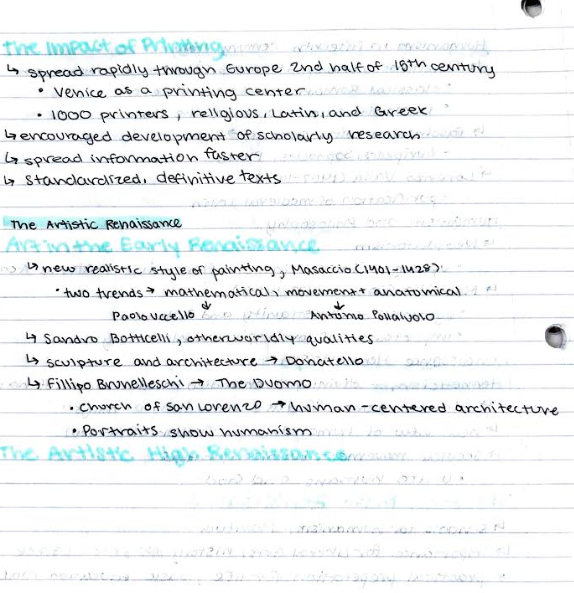 The Impact of Printing
↳ spread rapidly through Europe 2nd half of 15th century
• Venice as a printing center
• 1000 printers, religious, Latin, and Greek
↳ encouraged development of scholarly research
↳ spread information faster
↳ standardized, definitive texts
The Artistic Renaissance
Art in the Early Renaissance
↳ new realistic style of painting, Masaccio (1401-1428)
• two trends → mathematical, movement + anatomical
Paolo Uccello Antonio Pollaiuolo
↳ Sandro Botticelli, otherworldly qualities
↳ sculpture and architecture → Donatello
↳ Fillipo Brunelleschi → The Duomo
• Church of San Lorenzo → human-centered architecture
• Portraits show humanism
The Artistic High Renaissance